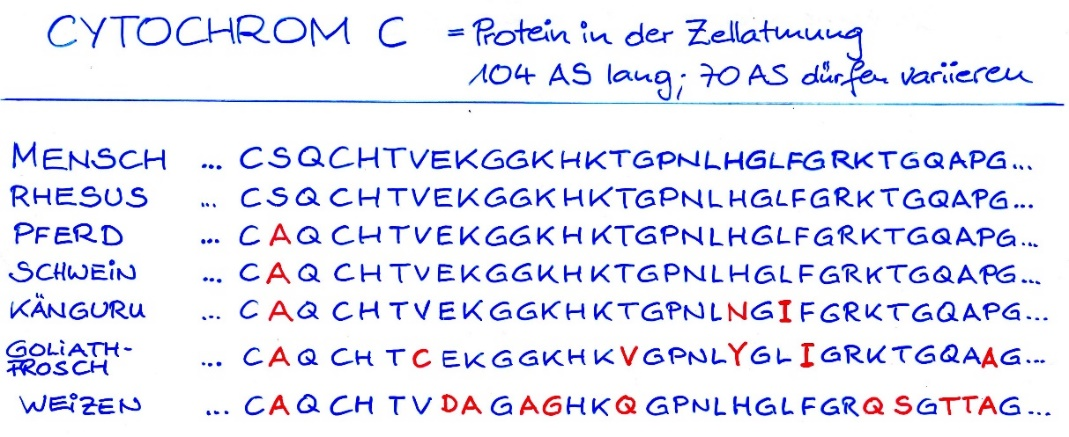 CYTOCHROM C = Protein in der Zellatmung
104 AS lang; 70 AS dürfen variieren
MENSCH ... CSQCHTVEKGGKHKTGPNLHGLFGRKTGQAPG...
RHESUS ... CSQCHTVEKGGKHKTGPNLHGLFGRKTGQAPG...
PFERD ... CAQCHTVEKGGKHKTGPNLHGLFGRKTGQAPG...
SCHWEIN ... CAQCHTVEKGGKHKTGPNLHGLFGRKTGQAPG...
KÄNGURU ... CAQCHTVEKGGKHKTGPNLNGIFGRKTGQAPG...
GOLIATH-
FROSCH ... CAQCHTCEKGGKHKVGPNLYGLIGRKTGQAAG...
WEIZEN ... CAQCHTVDAGAGHKQGPNLHGLFGRQSGTTAG...